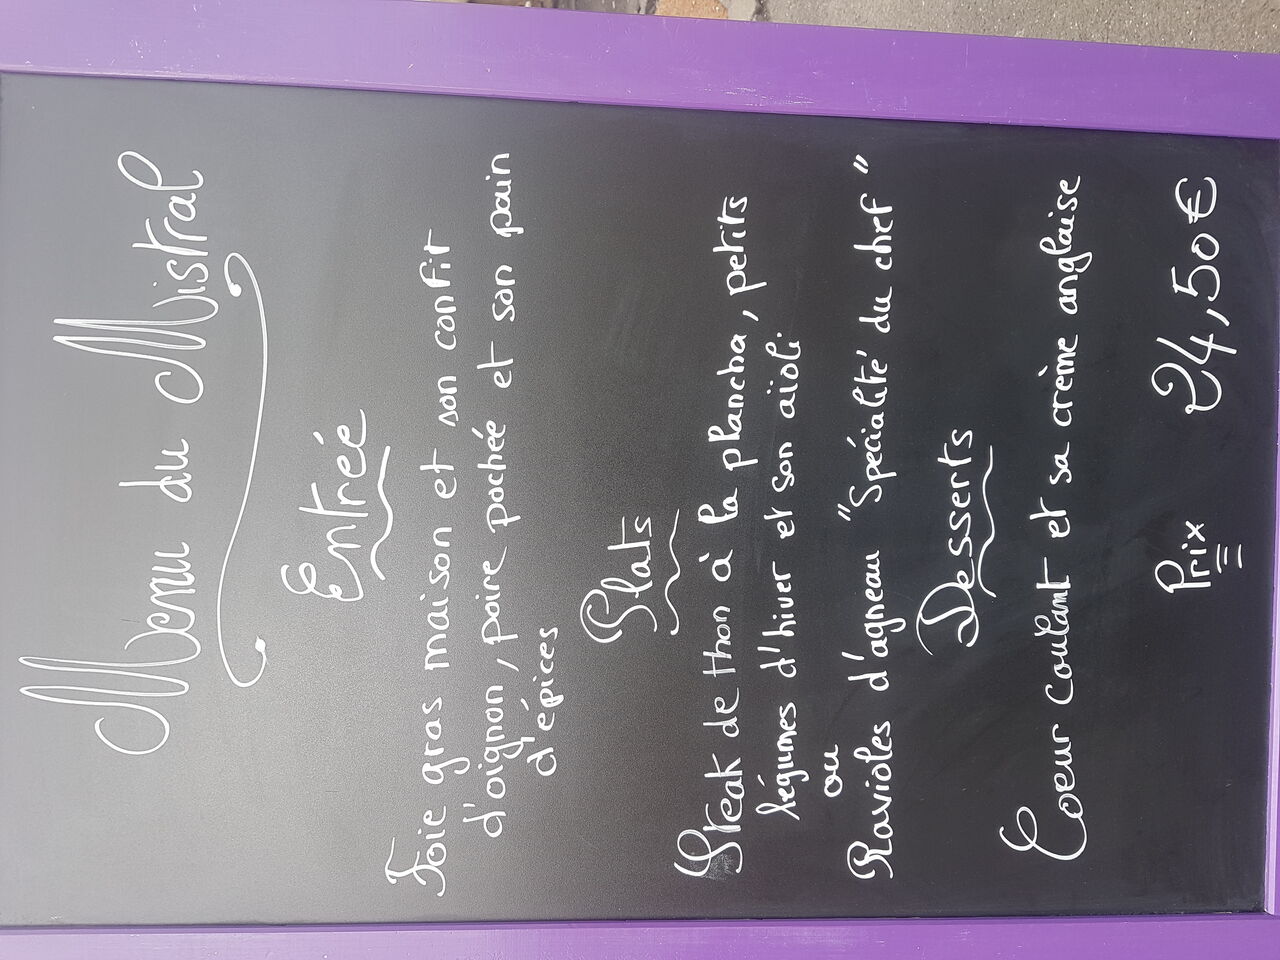 Menu du Mistral
Entrée
Foie gras maison et son confit
d'oignon, poire pochée et son pain
d'épices
Plats
Steak de thon à la plancha, petits
légumes d'hiver et son aïoli.
ou
Ravioles d'agneau "Spécialité du chef"
Desserts
Coeur coulant et sa crème anglaise
Prix 24,50€